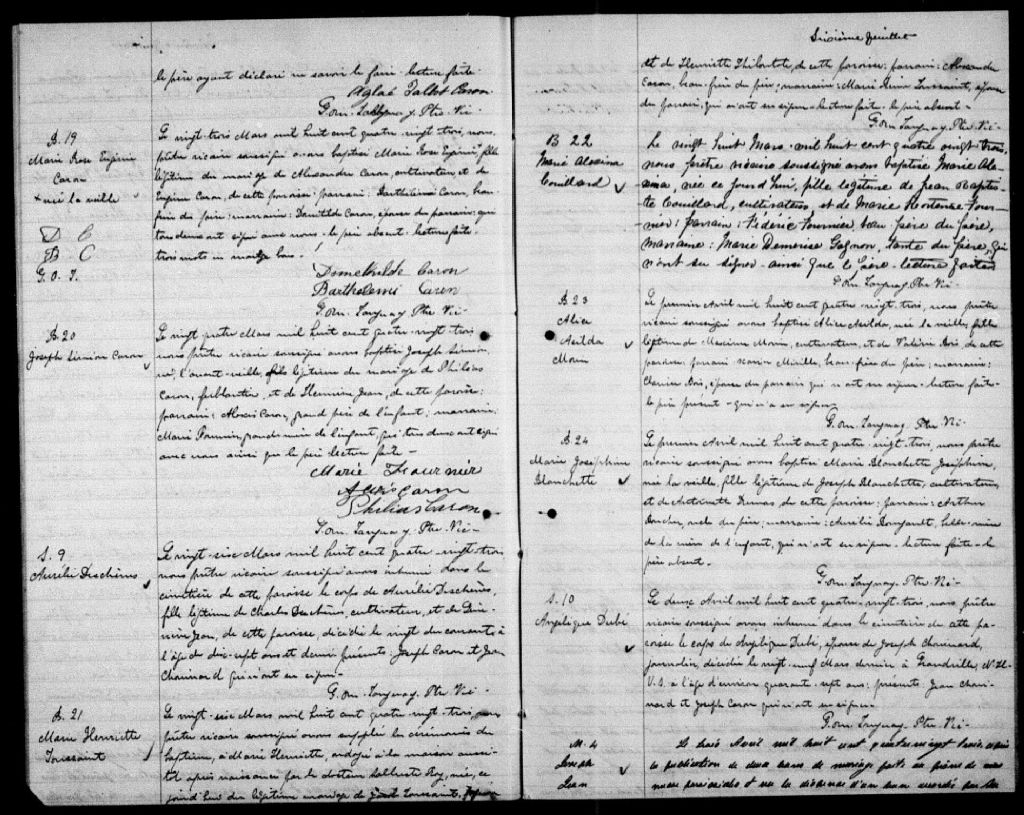 le père ayant déclaré ne savoir le faire. lecture faite.
Aglaé Talbot Caron
G. Om. Tanguay Ptre Vic-
B. 19
Marie Rose Eugénie
Caron
+ née la veille
D C
B. C
G. O. T.
Le vingt-trois Mars mil huit cent quatre-vingt-trois, nous,
prêtre vicaire soussigné avons baptisé Marie Rose Eugénie, fille
légitime du mariage de Alexandre Caron, cultivateur, et de
Eugénie Caron, de cette paroisse: parrain: Barthélemi Caron, beau-
frère du père; marraine: Caron, épouse du parrain, qui
tous deux ont signé avec nous. le père absent. lecture faite.
trois mots en marge bons.
Caron
Barthelemi Caron
G. Om. Tanguay Ptre Vic-
B. 20
Joseph Siméon Caron
Le vingt-quatre Mars mil huit cent quatre-vingt-trois
nous prêtre vicaire soussigné avons baptisé Joseph Siméon,
né l'avant-veille, fils légitime du mariage de Philéas
Caron, ferblantier, et de Hermine Jean, de cette paroisse:
parrain: Alexis Caron, grand père de l'enfant; marraine:
Marie Fournier, grande mère de l'enfant, qui tous deux ont signé
avec nous ainsi que le père lecture faite -
Marie Fournier
Alexis Caron
Philias Caron
G. Om. Tanguay Ptre Vic-
S. 9
Aurélie Deschênes
Le vingt-six Mars mil huit cent quatre-vingt-trois
nous prêtre vicaire soussigné avons inhumé dans le
cimetière de cette paroisse le corps de Aurélie Deschênes,
fille légitime de Charles Deschênes, cultivateur, et de
Jean, de cette paroisse, décédée le vingt du courant, à
l'âge de dix-sept ans et demi présents Joseph Caron et Jean
Chouinard qui n'ont su signer-
G. Om. Tanguay Ptre Vic-
B. 21
Marie Henriette
Toussaint
Le vingt-six Mars mil huit cent quatre-vingt-trois, nous
prêtre vicaire soussigné avons suppléé les cérémonies du
baptême, à Marie Henriette, ondoyée à la maison aussi-
tôt après naissance par le docteur Salluste Roy, née, ce
jourd'hui du légitime mariage de Toussaint,
Sixième feuillet
et de Henriette Thiboutot, de cette paroisse; parrain: Alexandre
Caron, beau-frère du père; marraine: Marie Toussaint, épouse
du parrain, qui n'ont su signer. lecture faite. le père absent-
G. Om. Tanguay Ptre Vic-
B 22
Marie Alexina
Couillard
Le vingt huit Mars mil huit cent quatre vingt trois,
nous prêtre vicaire soussigné avons baptisé Marie Ale-
xina, née ce jourd'hui, fille légitime de Jean Baptis-
te Couillard, cultivateur, et de Marie Hortense Four-
nier: parrain: Fédéric Fournier, beau frère du père,
marraine: Marie Demerise Gagnon, tante du père, qui
n'ont su signer ainsi que le père. lecture faite
G. Om. Tanguay Ptre Vic-
B. 23
Alice
Asilda
Morin
Le premier Avril mil huit cent quatre-vingt-trois, nous prêtre
vicaire soussigné avons baptisé Alice Asilda, née la veille, fille
légitime de Maxime Morin, cultivateur, et de Valérie Bois, de cette
paroisse: parrain: Miville, beau-frère du père; marraine:
Bois, épouse du parrain qui n'ont su signer. lecture faite.
le père présent - qui n'a su signer-
G. Om. Tanguay Ptre Vic-
B. 24
Marie Joséphine
Blanchette
Le premier Avril mil huit cent quatre-vingt-trois, nous prêtre
vicaire soussigné avons baptisé Marie Blanchette Joséphine,
née la veille, fille légitime de Joseph Blanchette, cultivateur,
et de Antoinette Dumas, de cette paroisse: parrain: Arthur
Boucher, oncle du père; marraine: Aurélie Bourgault, belle-mère
de la mère de l'enfant, qui n'ont su signer. lecture faite. le
père absent-
G. Om. Tanguay Ptre Vic-
S. 10
Angélique Dubé
Le deux Avril mil huit cent quatre-vingt-trois, nous prêtre
vicaire soussigné avons inhumé dans le cimetière de cette pa-
roisse le corps de Angélique Dubé, épouse de Joseph Chouinard,
journalier, décédée le vingt-neuf Mars dernier à N.H.
U.S. à l'âge d'environ quarante-sept ans; présents: Jean Choui-
nard et Joseph Caron qui n'ont su signer-
G. Om. Tanguay Ptre Vic-
M. 4
Joseph
Jean
Le trois Avril mil huit cent quatre-vingt trois, après
la publication de deux bans de mariage faite au prône de nos
messes paroissiales et vu la dispense d'un ban accordée par